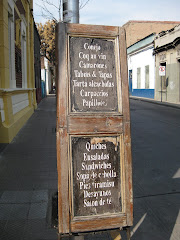 Conejo
Coq au vin
Camarones
Tablas & Tapas
Tarta
Carpaccios
Papillote
Quiches
Ensaladas
Sandwiches
Sopa de cebolla
Pie
Desayunos
Salón de té